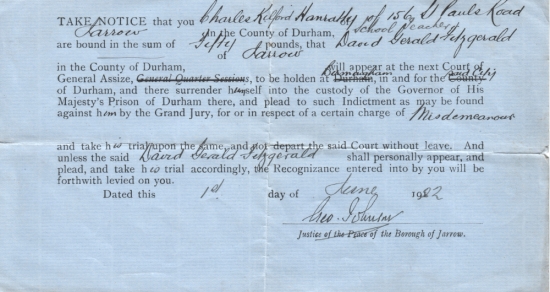 TAKE NOTICE that you Charles Kilford Hanratty of 156 St Pauls Road
Jarrow in the County of Durham, School Teacher
are bound in the sum of Fifty pounds, that David Gerald Fitzgerald
of Jarrow
in the County of Durham, will appear at the next Court of
General Assize, General Quarter Sessions, to be holden at Durham, in and for the County
of Durham, and there surrender himself into the custody of the Governor of His
Majesty's Prison of Durham there, and plead to such Indictment as may be found
against him by the Grand Jury, for or in respect of a certain charge of Misdemeanour
and take his trial upon the same, and not depart the said Court without leave. And
unless the said David Gerald Fitzgerald shall personally appear, and
plead, and take his trial accordingly, the Recognizance entered into by you will be
forthwith levied on you.
Dated this 1st day of June 1922
Geo. Johnson
Justice of the Peace of the Borough of Jarrow.